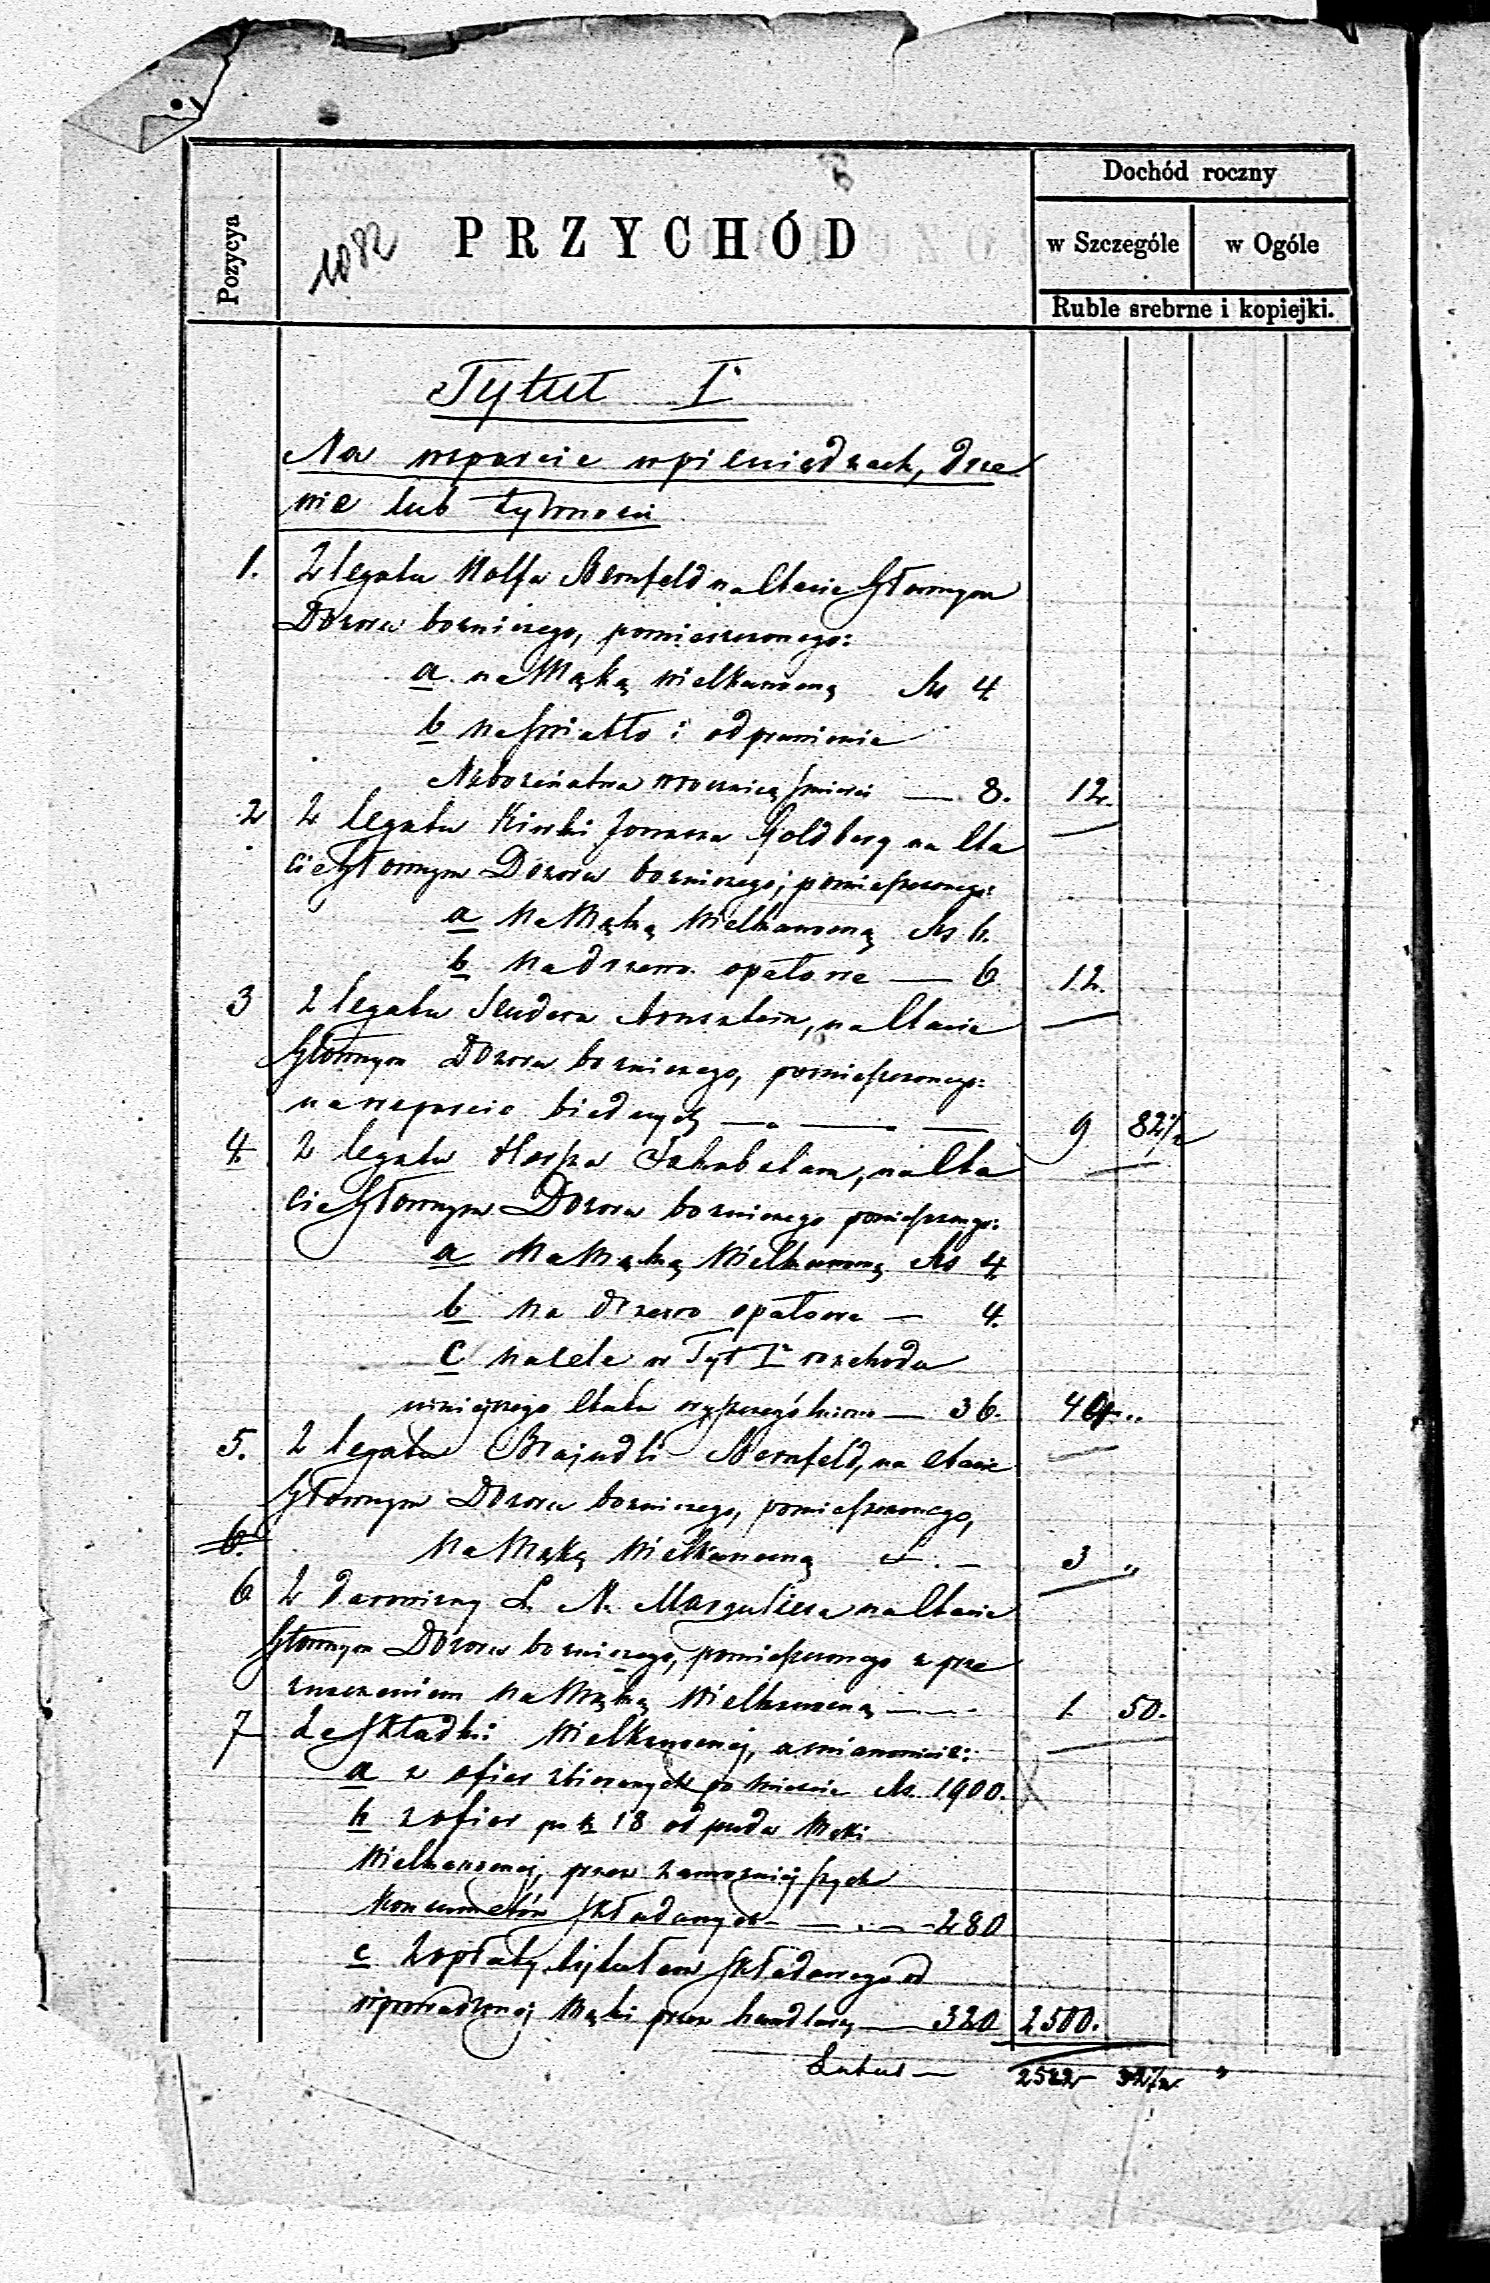 Dochód roczny
Pozycya
1082
PRZYCHÓD
w Szczególe
w Ogóle
Ruble srebrne i kopiejki.
Tytuł I.
Na wsparcie w pieniądzach, drze
wie lub żywności
1. Z legatu Wolfa Bernfeld na Etacie Głównym
Dozoru bożniczego, pomieszczonego:
a. na Mąkę wielkanocną Rs 4
b na Światło i odprawienie
Nabożeństwa w rocznicę śmierci — 8. 12.
2 Z legatu Kiwki Goldberg na Eta
cie Głównym Dozoru bożniczego, pomieszczonego:
a Na Mąkę Wielkanocną Rs 6.
b Na drzewo opałowe — 6 12.
3 Z legatu Sendera na Etacie
Głównym Dozoru bożniczego, pomieszczonego:
na wsparcie biednych — — — 9 82½
4. Z legatu na Eta
cie Głównym Dozoru bożniczego pomieszczonego:
a Na Mąkę Wielkanocną Rs 4
b Na drzewo opałowe — 4.
c na cele w Tyt I rozchodu
niniejszego Etatu wyszczególnione — 36. 44 „
5. Z legatu Brajndli Bernfeld, na etacie
Głównym Dozoru bożniczego, pomieszczonego,
6.
Na Mąkę Wielkanocną — 3 „
6 Z darowizny L. N. Marguliesa na Etacie
Głównym Dozoru bożniczego, pomieszczonego z prze
znaczeniem Na Mąkę Wielkanocną — 1. 50.
7 Ze Składki Wielkanocnej, a mianowicie:
a z ofiar zbieranych po mieście Rs. 1900.
b z ofiar po k 18 od puda Mąki
Wielkanocnej, przez zamożniejszych
konsumentów składanych — 280
c Z opłaty tytułem składowego od
wprowadzonej Mąki przez handlarzy — 320 2500.
Latus — 2582 32½ „